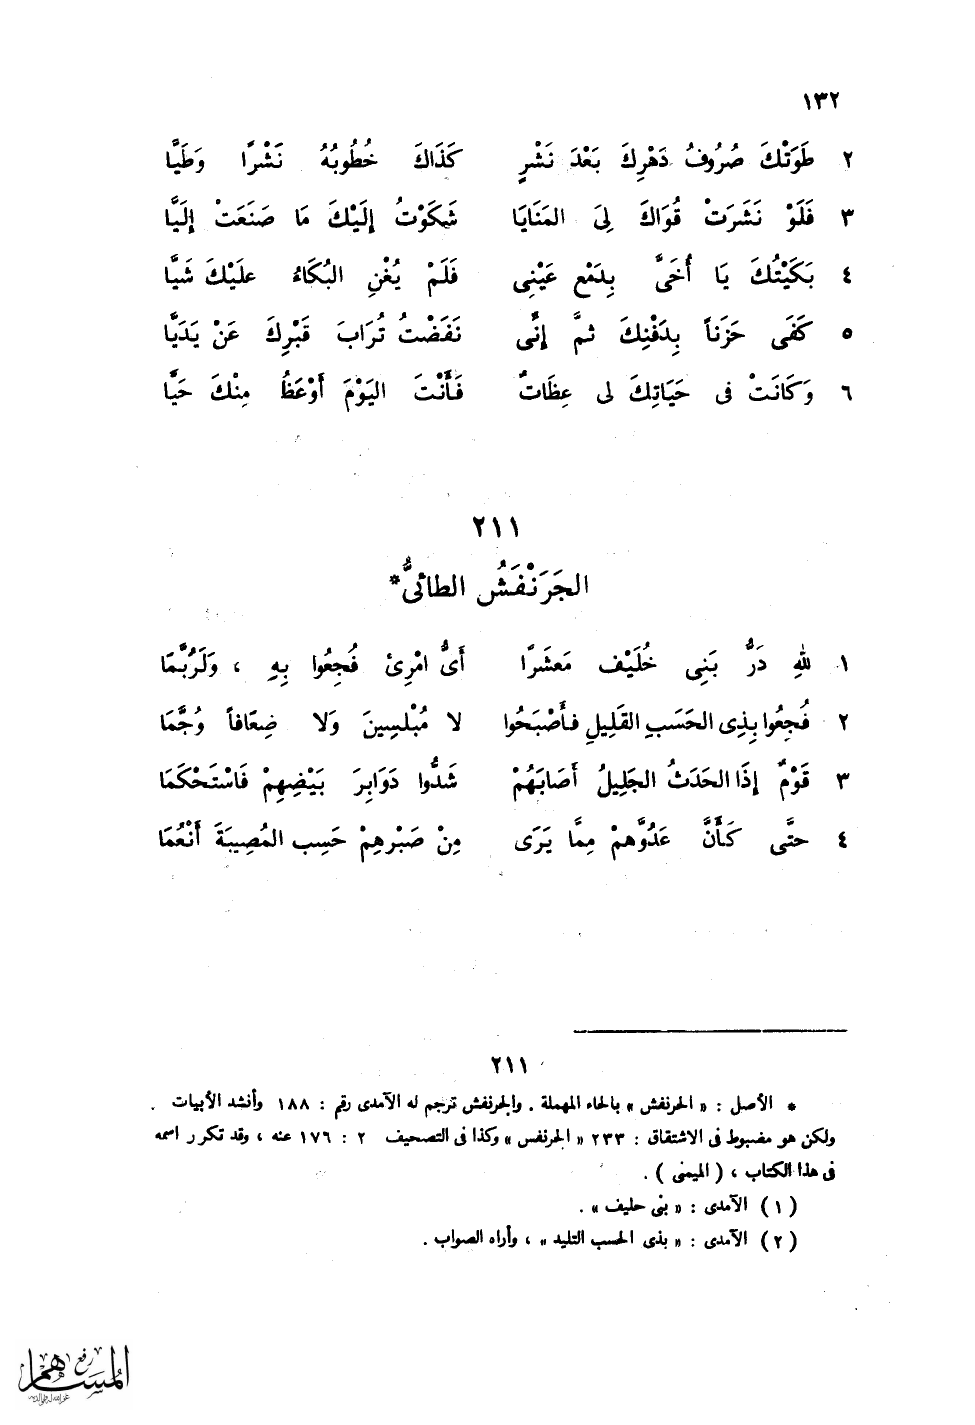 ١٣٢
٢ طَوَتْكَ صُرُوفُ دَهْرِكَ بَعْدَ نَشْرٍ كَذَاكَ خُطُوبُهُ نَشْرًا وَطَيَّا
٣ فَلَوْ نَشَرَتْ قُوَاكَ لِىَ المَنَايَا شَكَوْتُ إِلَيْكَ مَا صَنَعَتْ إِلَيَّا
٤ بَكَيْتُكَ يَا أُخَىَّ بِدَمْعِ عَيْنِى فَلَمْ يُغْنِ البُكَاءُ علَيْكَ شَيَّا
٥ كَفَى حَزَناً بِدَفْنِكَ ثمَّ إِنَّى نَفَضْتُ تُرَابَ قَبْرِكَ عَنْ يَدَيَّا
٦ وَكَانَتْ فى حَيَاتِكَ لى عِظَاتٌ فَأَنْتَ اليَوْمَ أَوْعَظُ مِنْكَ حَيَّا
٢١١
الجَرَنْفَشُ الطائىُّ*
١ للهِ دَرُّ بَنِى خُلَيْف مَعشَرًا أَىُّ امْرِئ فُجِعُوا بِهِ ، وَلَرُبَّمَا
٢ فُجِعُوا بِذِى الحَسَبِ القَلِيلِ فأَصْبَحُوا لا مُبْلسِينَ وَلا ضِعَافاً وُجَّمَا
٣ قَوْمٌ إِذَا الحَدَثُ الجَلِيلُ أَصَابَهُمْ شَدُّوا دَوَابِرَ بَيْضِهِمْ فَاسْتَحْكَمَا
٤ حتَّى كَأَنَّ عَدُوَّهمْ مِمَّا يَرَى مِنْ صَبْرهِمْ حَسِب المُصِيبَةَ أَنْعُمَا
٢١١
* الأصل : « الحرنفش » بالحاء المهملة . والجرنفش ترجم له الآمدى رقم : ١٨٨ وأنشد الأبيات .
ولكن هو مضبوط فى الاشتقاق : ٢٣٣ « الجرنفس » وكذا فى التصحيف ٢ : ١٧٦ عنه ، وقد تكرر اسمه
فى هذا الكتاب ، ( الميمنى ) .
( ١ ) الآمدى : « بنى حليف » .
( ٢ ) الآمدى : « بذى الحسب التليد » ، وأراه الصواب .